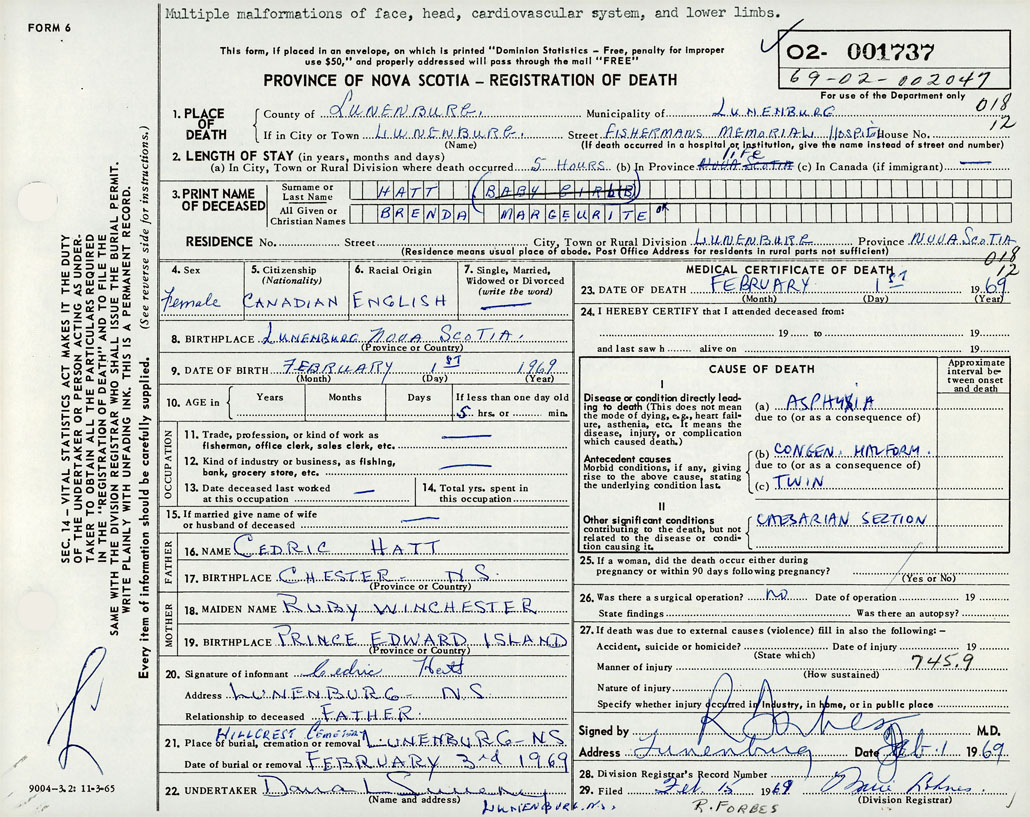 Multiple malformations of face, head, cardiovascular system, and lower limbs.
FORM 6
This form, if placed in an envelope, on which is printed "Dominion Statistics – Free, penalty for improper
use $50," and properly addressed will pass through the mail "FREE"
PROVINCE OF NOVA SCOTIA – REGISTRATION OF DEATH
02- 001737
69-02-002047
For use of the Department only
018
12
1. PLACE OF DEATH
County of LUNENBURG. Municipality of LUNENBURG
If in City or Town LUNENBURG. Street FISHERMANS MEMORIAL HOSPITAL House No.
(Name) (If death occurred in a hospital or institution, give the name instead of street and number)
2. LENGTH OF STAY (in years, months and days)
(a) In City, Town or Rural Division where death occurred 5 HOURS (b) In Province life NOVA SCOTIA (c) In Canada (if immigrant) —
3. PRINT NAME OF DECEASED
Surname or Last Name HATT (BABY GIRL B)
All Given or Christian Names BRENDA MARGEURITE OK
RESIDENCE No. Street City, Town or Rural Division LUNENBURG Province NOVA SCOTIA
(Residence means usual place of abode. Post Office Address for residents in rural parts not sufficient)
018
12
4. Sex Female
5. Citizenship (Nationality) CANADIAN
6. Racial Origin ENGLISH
7. Single, Married, Widowed or Divorced (write the word) —
8. BIRTHPLACE LUNENBURG NOVA SCOTIA.
(Province or Country)
9. DATE OF BIRTH FEBRUARY 1ST 1969
(Month) (Day) (Year)
10. AGE in Years Months Days If less than one day old
5 hrs. or min.
OCCUPATION
11. Trade, profession, or kind of work as
fisherman, office clerk, sales clerk, etc. —
12. Kind of industry or business, as fishing,
bank, grocery store, etc. —
13. Date deceased last worked
at this occupation —
14. Total yrs. spent in
this occupation
15. If married give name of wife
or husband of deceased —
FATHER
16. NAME CEDRIC HATT
17. BIRTHPLACE CHESTER - NS.
(Province or Country)
MOTHER
18. MAIDEN NAME RUBY WINCHESTER
19. BIRTHPLACE PRINCE EDWARD ISLAND
(Province or Country)
20. Signature of informant Cedric Hatt
Address LUNENBURG - NS
Relationship to deceased FATHER.
HILLCREST CEMETERY
21. Place of burial, cremation or removal LUNENBURG - NS
Date of burial or removal FEBRUARY 3rd 1969
22. UNDERTAKER
(Name and address)
LUNENBURG. N.S.
MEDICAL CERTIFICATE OF DEATH
23. DATE OF DEATH FEBRUARY 1ST 1969
(Month) (Day) (Year)
24. I HEREBY CERTIFY that I attended deceased from:
19 to 19
and last saw h alive on 19
CAUSE OF DEATH
Approximate interval between onset and death
I
Disease or condition directly leading
to death (This does not mean
the mode of dying, e.g., heart failure,
asthenia, etc. It means the
disease, injury, or complication
which caused death.)
(a) ASPHYXIA
due to (or as a consequence of)
Antecedent causes
Morbid conditions, if any, giving
rise to the above cause, stating
the underlying condition last.
(b) CONGEN. MALFORM.
due to (or as a consequence of)
(c) TWIN
II
Other significant conditions
contributing to the death, but not
related to the disease or condition
causing it.
CAESARIAN SECTION
25. If a woman, did the death occur either during
pregnancy or within 90 days following pregnancy?
(Yes or No)
26. Was there a surgical operation? NO Date of operation 19
State findings Was there an autopsy?
27. If death was due to external causes (violence) fill in also the following: –
Accident, suicide or homicide? Date of injury 19
(State which) 745.9
Manner of injury
(How sustained)
Nature of injury
Specify whether injury occurred in Industry, in home, or in public place
Signed by R Forbes M.D.
Address Lunenburg Date Feb 1 1969
28. Division Registrar's Record Number
29. Filed Feb. 15 1969
(Division Registrar)
R. FORBES
SEC. 14 – VITAL STATISTICS ACT MAKES IT THE DUTY
OF THE UNDERTAKER OR PERSON ACTING AS UNDERTAKER
TO OBTAIN ALL THE PARTICULARS REQUIRED
IN THE "REGISTRATION OF DEATH" AND TO FILE THE
SAME WITH THE DIVISION REGISTRAR WHO SHALL ISSUE THE BURIAL PERMIT.
WRITE PLAINLY WITH UNFADING INK. THIS IS A PERMANENT RECORD.
Every item of information should be carefully supplied. (See reverse side for instructions.)
9004-3.2: 11-3-65